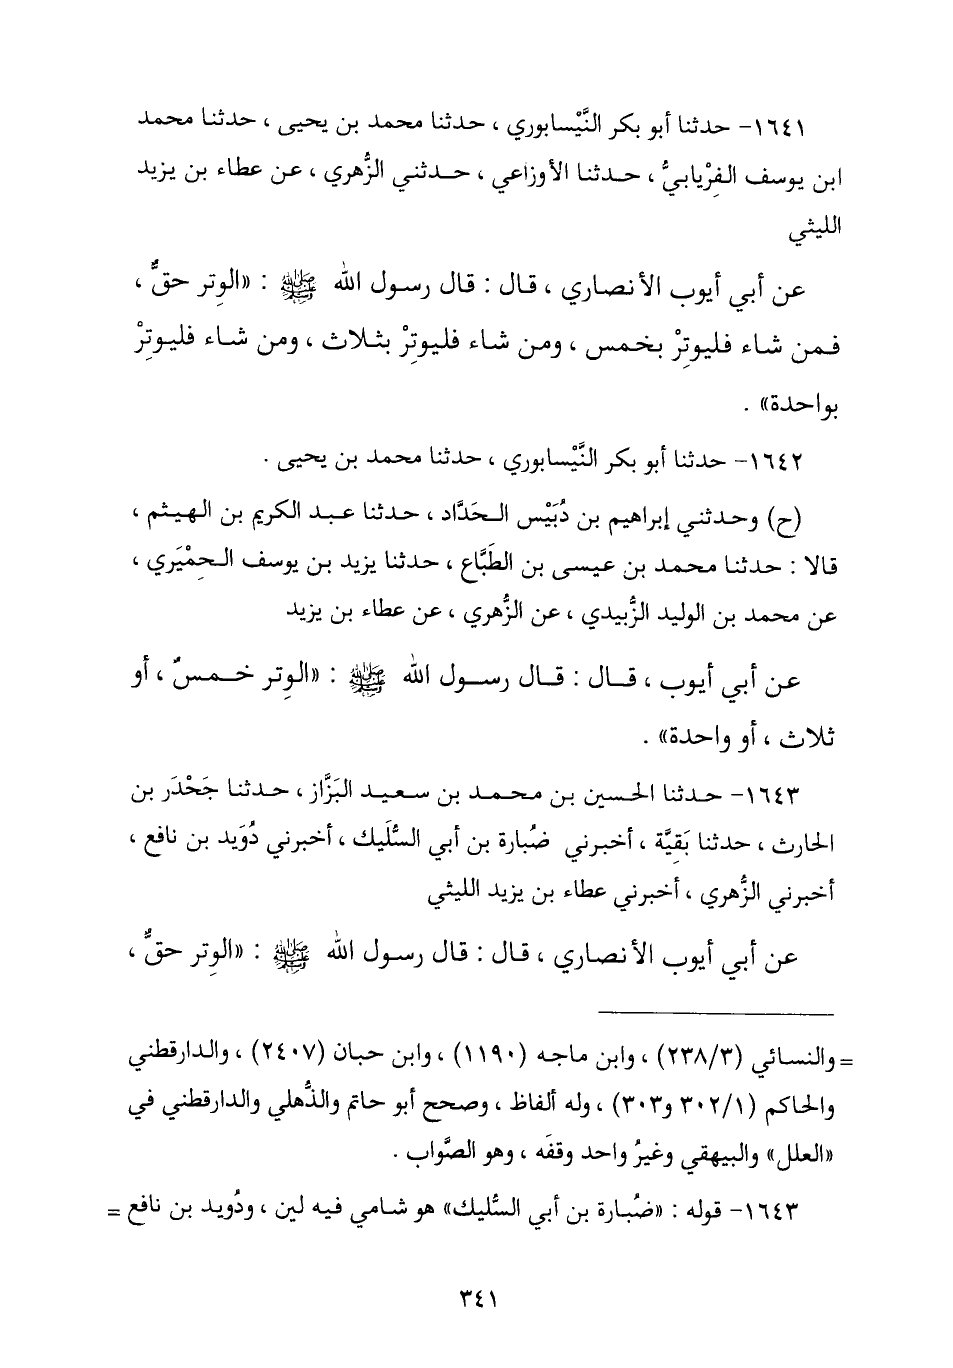 ١٦٤١- حدثنا أبو بكر النَّيْسابوري ، حدثنا محمد بن يحيى ، حدثنا محمد
ابن يوسف الفِرْيابيُّ ، حدثنا الأوزاعي ، حدثني الزُّهري ، عن عطاء بن يزيد
الليثي
عن أبي أيوب الأنصاري ، قال : قال رسول الله ﷺ : «الوِتر حقٌّ ،
فمن شاء فليوتِرْ بخمس ، ومن شاء فليوتِرْ بثلاث ، ومن شاء فليوتِرْ
بواحدة» .
١٦٤٢- حدثنا أبو بكر النَّيْسابوري ، حدثنا محمد بن يحيى .
(ح) وحدثني إبراهيم بن دُبَيْس الحدَّاد ، حدثنا عبد الكريم بن الهيثم ،
قالا : حدثنا محمد بن عيسى بن الطَبَّاع ، حدثنا يزيد بن يوسف الحِمْيَري ،
عن محمد بن الوليد الزُّبيدي ، عن الزُّهري ، عن عطاء بن يزيد
عن أبي أيوب ، قال : قال رسول الله ﷺ : «الوِتر خمسٌ ، أو
ثلاث ، أو واحدة» .
١٦٤٣- حدثنا الحسين بن محمد بن سعيد البَزَّاز ، حدثنا جَحْدَر بن
الحارث ، حدثنا بَقِيَّة ، أخبرني ضُبارة بن أبي السُّلَيك ، أخبرني دُوَيد بن نافع ،
أخبرني الزُّهري ، أخبرني عطاء بن يزيد الليثي
عن أبي أيوب الأنصاري ، قال : قال رسول الله ﷺ : «الوِتر حقٌّ ،
= والنسائي (٢٣٨/٣) ، وابن ماجه (١١٩٠) ، وابن حبان (٢٤٠٧) ، والدارقطني
والحاكم (٣٠٢/١ و٣٠٣) ، وله ألفاظ ، وصحح أبو حاتم والذُّهلي والدارقطني في
«العلل» والبيهقي وغيرُ واحد وقفَه ، وهو الصَّواب .
١٦٤٣- قوله : «ضُبارة بن أبي السُّليك» هو شامي فيه لين ، ودُويد بن نافع =
٣٤١